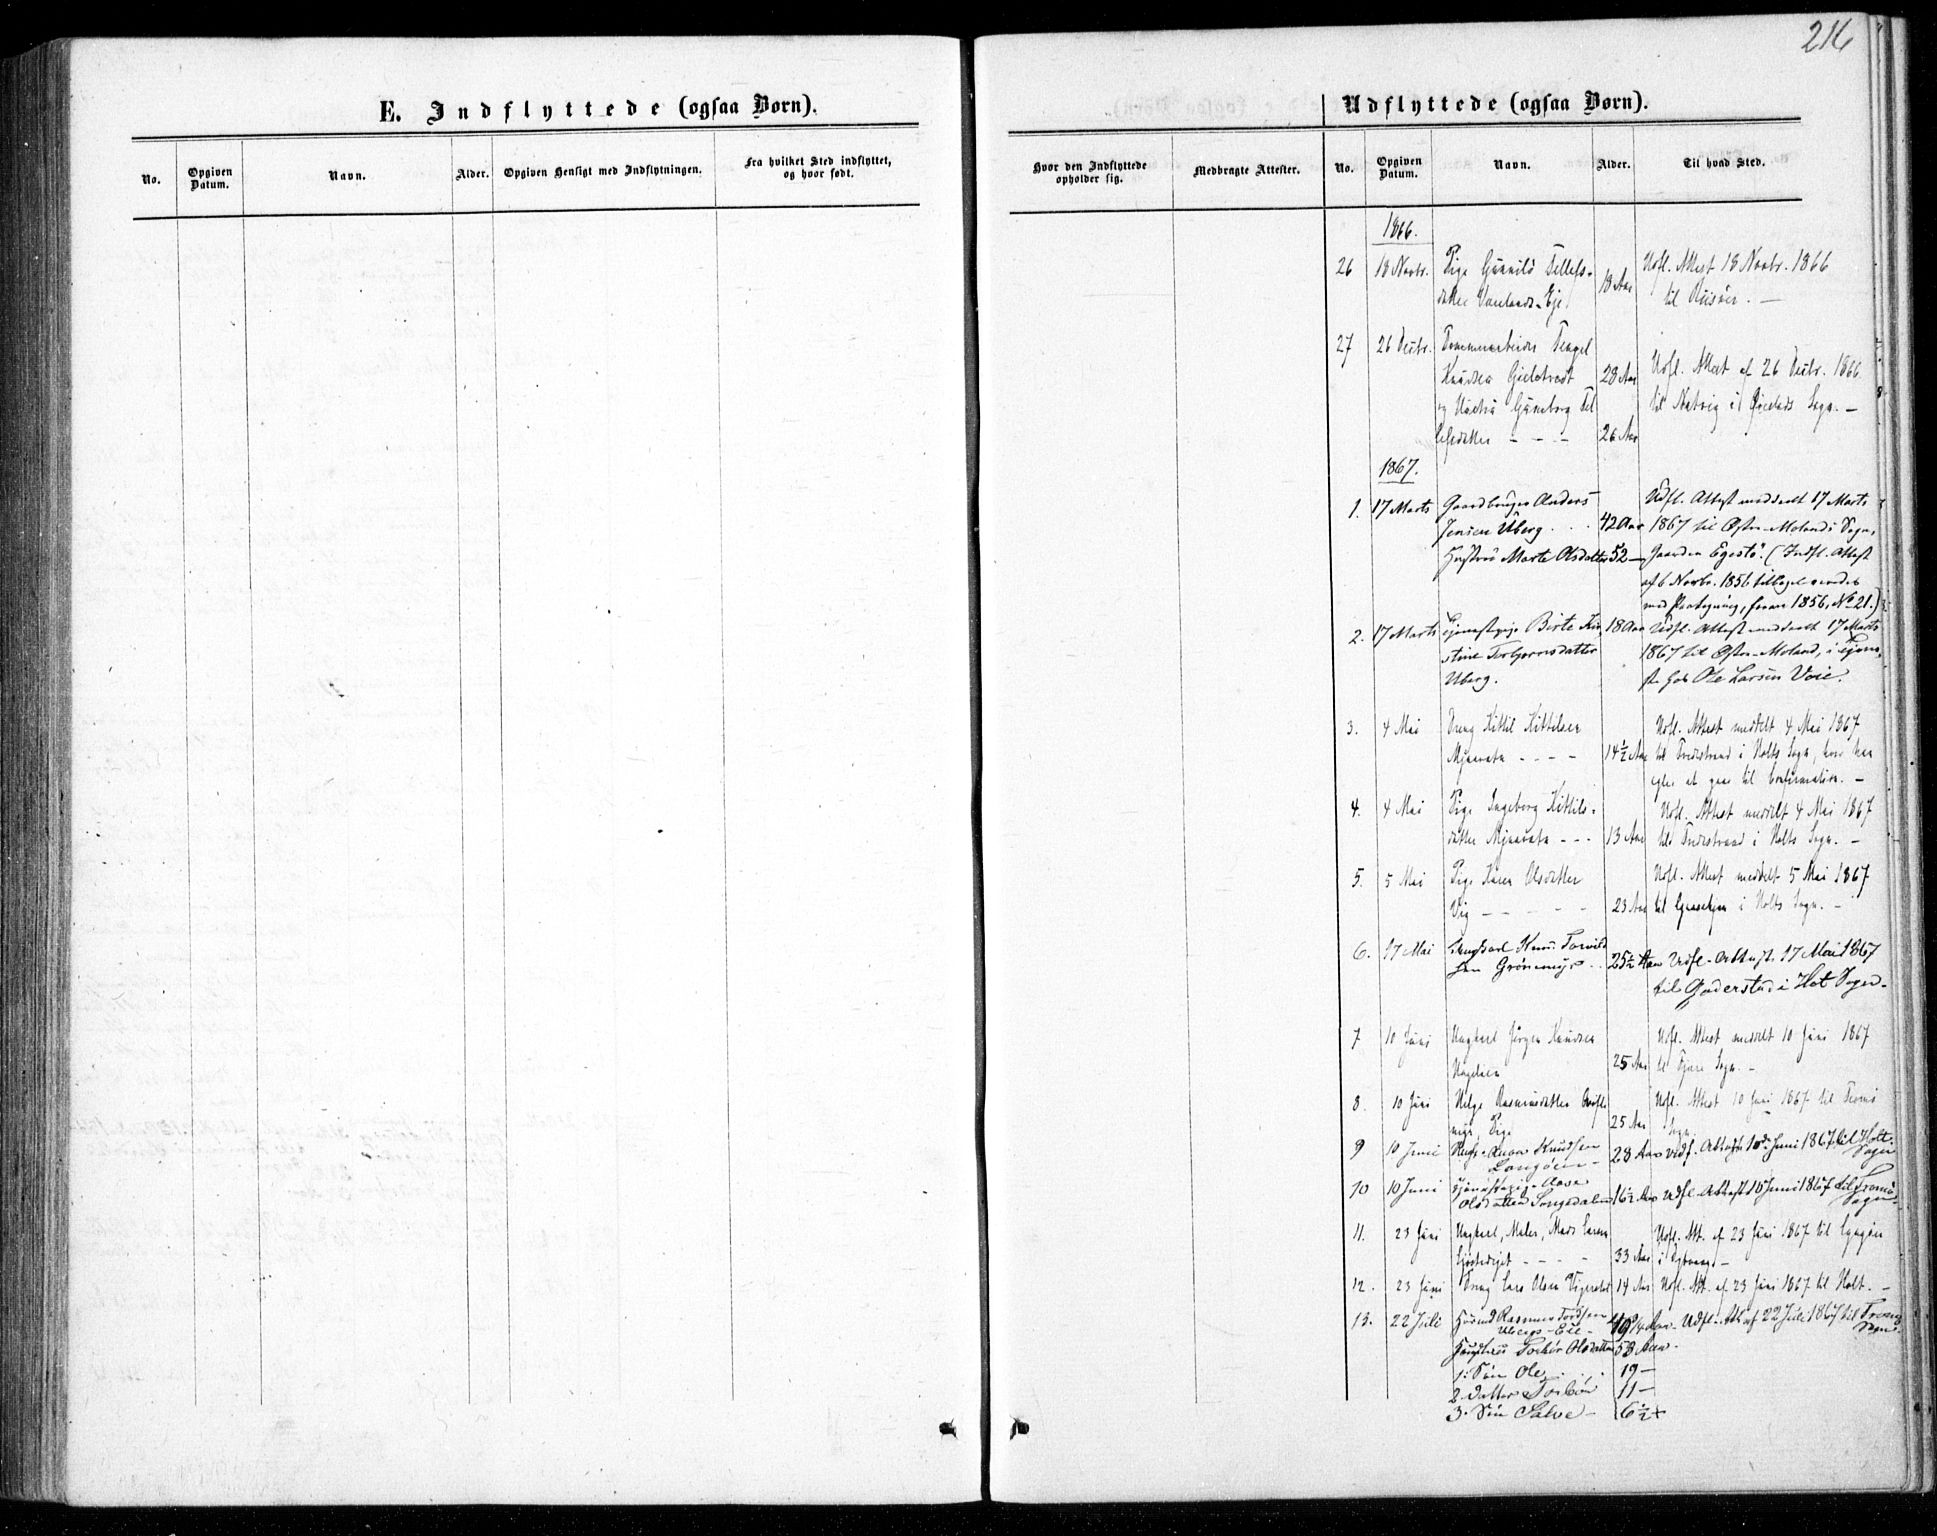 216
E. Indflyttede (ogsaa Børn).
No.
Opgiven Datum.
Navn.
Alder.
Opgiven Hensigt med Indflytningen.
Fra hvilket Sted indflyttet, og hvor født.
Udflyttede (ogsaa Børn).
Hvor den Indflyttede opholder sig.
Medbragte Attester.
No.
Opgiven Datum.
Navn.
Alder.
Til hvad Sted.
1866.
26 18 Novbr. Pige Gunnild Tellefs- Udfl. Attest 18 Novbr. 1866
datter Eje 18 Aar til Riisøer. —
27 26 Decbr. Tengel
Knudsen 28 Aar Udfl. Attest af 26 Decbr. 1866
og Hustru Gunborg Tel til Natvig i Øiestads Sogn. —
lefsdatter - - - 26 Aar
1867.
1. 17 Marts Gaardbruger Anders Udfl. Attest meddeelt 17 Marts
Jensen Uberg . . . 42 Aar 1867 til Østre-Molands Sogn,
Hustru Marte Olsdatter 52 — Gaarden (Indfl. Attest
af 6 Novbr. 1856 tilbagesendes
med Paategning, 1856, No 21.)
2. 17 Marts Tjenestepige Birte Kir- 18 Aar Udfl. Attest meddeelt 17 Marts
stine Terbjørnsdatter 1867 til Østre-Moland, i Tjene-
Uberg. ste hos Ole Larsen Voie.
3. 4 Mai Dreng Kittil Kittilsen Udfl. Attest meddelt 4 Mai 1867
Mjaavatn - - - - 14½ Aar til Tvedestrand i Holts Sogn, hvor han
at gaa til Confirmation. —
4. 4 Mai Pige Ingeborg Kittils- Udfl. Attest meddelt 4 Mai 1867
datter Mjaavatn - - - 13 Aar til Tvedestrand i Holts Sogn. —
5. 5 Mai Pige Karen Olsdatter Udfl. Attest meddelt 5 Mai 1867
Vig - - - - 23 Aar til i Holts Sogn. —
6. 17 Mai Ungkarl Knud
sen Grønemyr . . 25½ Aar Udfl. Attest. 17 Mai 1867
til Goderstad i Holt Sogn.
7 10 Juni Ungkarl Jørgen Knudsen Udfl. Attest meddelt 10 Juni 1867
25 Aar til Fjære Sogn. —
8. 10 Juni Helge Rasmusdatter Udfl. Attest 10 Juni 1867 til Tromø
Pige 25 Aar Sogn.
9 10 Juni Knudsen 28 Aar Udfl. Attest 10de Juni 1867 til Holt
Sogn
10 10 Juni Tjenestepige Aase
Olsdatter Songedalen 16½ Aar Udfl. Attest 10 Juni 1867 til Tromø
Sogn
11. 23 Juni Ungkarl, Maler, Mads Larsen Udfl. Att. af 23 Juni 1867 til Lyngøer
- - - - 33 Aar i
12. 23 Juni Dreng Lars Olsen 14 Aar Udfl. Att. af 23 Juni 1867 til Holt. —
13. 22 Juli Rasmus Tordsen
Ubergs-Eie - Aar. Udfl. Att. af 22 Juli 1867 til Tromø
Sogn.
Hustrue Olsdatter 53 Aar.
1: Søn Ole . . . 19 —
2. Datter 11 —
3. Søn Salve — 6½